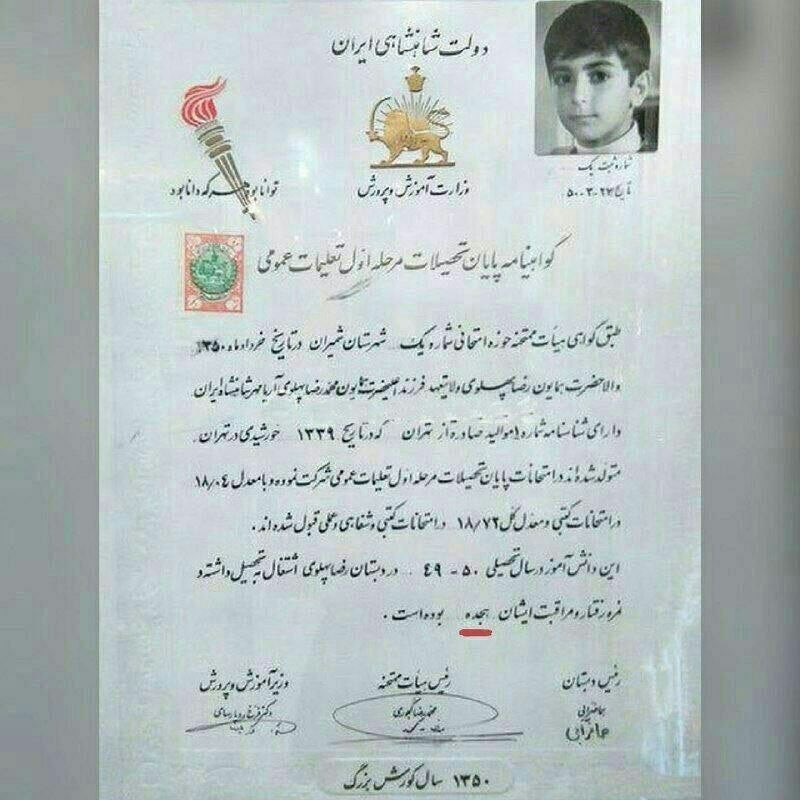 دولت شاهنشاهی ایران
وزارت آموزش و پرورش
توانا بود هر که دانا بود
شماره ثبت یک
تاریخ ۲۴-۳-۵۰
گواهینامه پایان تحصیلات مرحله اول تعلیمات عمومی
طبق گواهی هیأت ممتحنه حوزه امتحانی شماره یک شهرستان شمیران در تاریخ خرداد ماه ۱۳۵۰
والاحضرت همایون رضا پهلوی ولایتعهد فرزند اعلیحضرت همایون محمد رضا پهلوی آریامهر شاهنشاه ایران
دارای شناسنامه شماره ۱ موالید صادره از تهران که در تاریخ ۱۳۳۹ خورشیدی در تهران
متولد شده اند در امتحانات پایان تحصیلات مرحله اول تعلیمات عمومی شرکت نموده و با معدل ۱۸/۰۴
در امتحانات کتبی و معدل کل ۱۸/۷۲ در امتحانات کتبی و شفاهی و عملی قبول شده اند.
این دانش آموز در سال تحصیلی ۵۰ - ۴۹ در دبستان رضا پهلوی اشتغال به تحصیل داشته و
نمره رفتار و مراقبت ایشان هجده بوده است.
رئیس دبستان
رئیس هیأت ممتحنه
وزیر آموزش و پرورش
دکتر فرخ رو پارسای
۱۳۵۰ سال کورش بزرگ